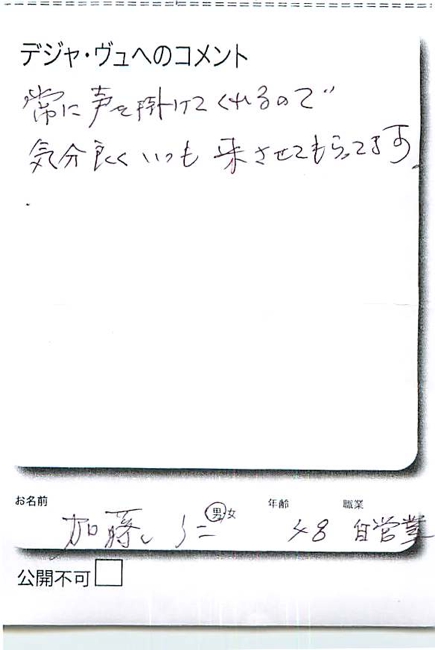 デジャ・ヴュへのコメント
常に声を掛けてくれるので
気分良くいつも来させてもらってます。
お名前 男女 年齢 職業
加藤 48 自営業
公開不可